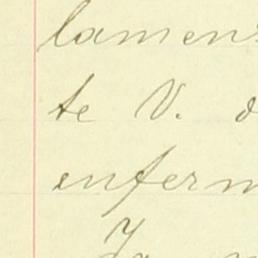 lamen
te V. d
enferm
Ya